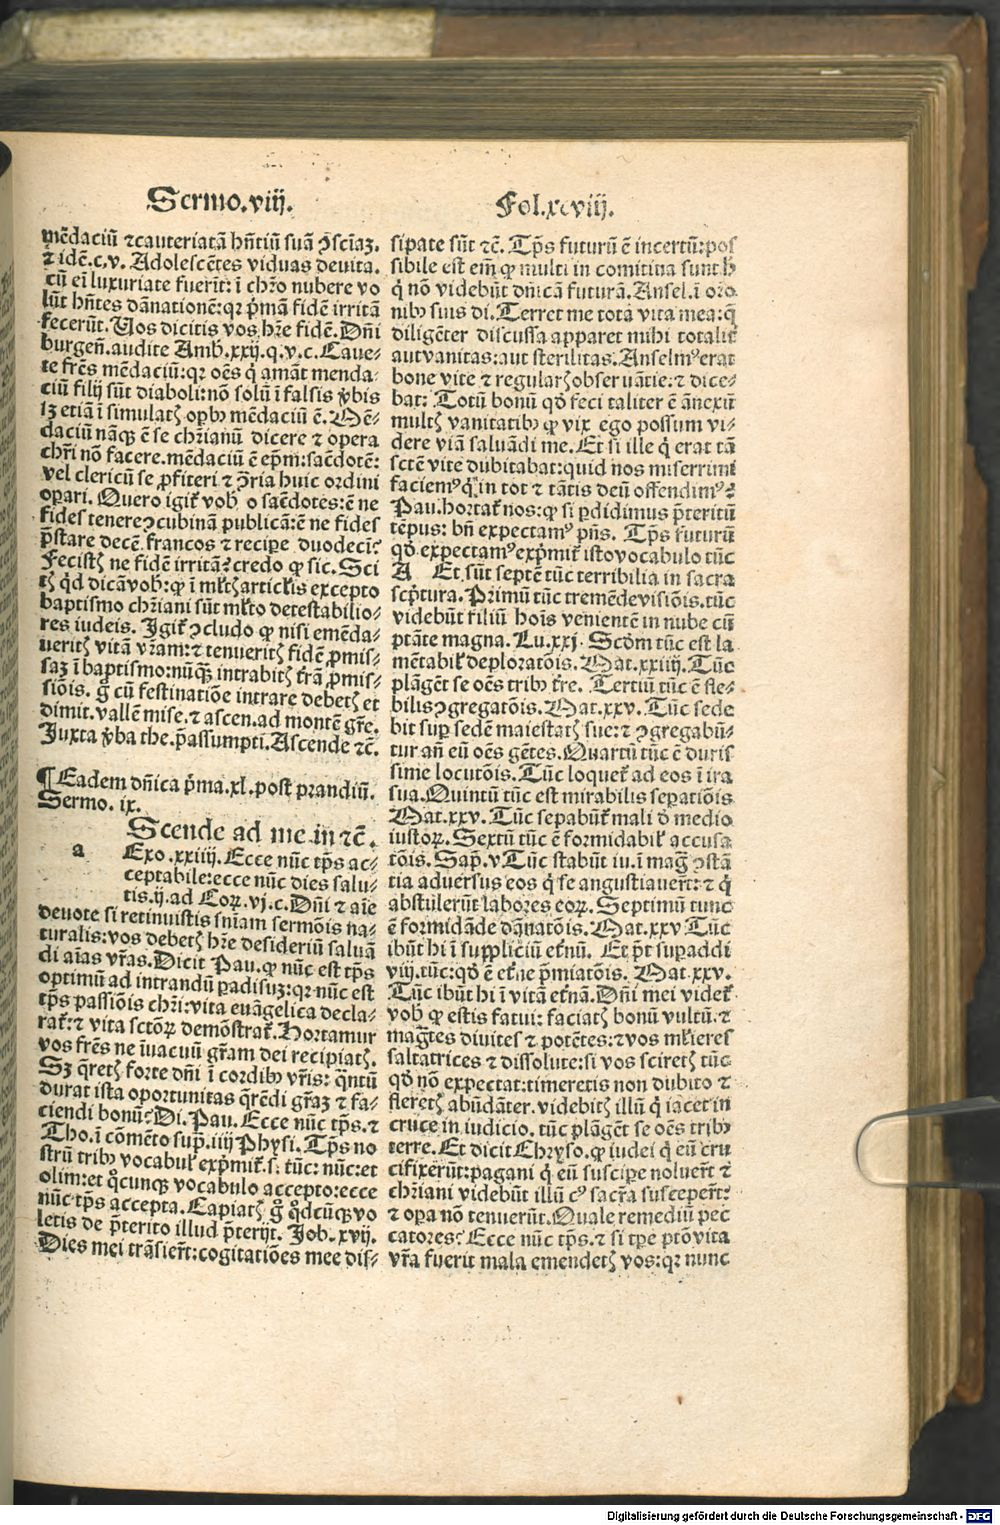 Sermo.viij.
Fol.xcviij.
mẽdaciũ ⁊cauteriatã hñtiũ suã ꝯsciãʒ.
⁊ idẽ.c.v. Adolescẽtes viduas deuita.
cũ eĩ luxuriate fuerĩt: ĩ chro nubere vo
lũt hñtes dãnationẽ: qꝛ pͥmã fidẽ irritã
fecerũt. Uos dicitis vos hr̃e fidẽ. Dñi
burgeñ. audite Amb.xxij.q.v.c. Caue-
te fr̃es mẽdaciũ: qꝛ oẽs qͥ amãt menda-
ciũ filij sũt diaboli: nõ solũ ĩ falsis v̾bis
sʒ etiã ĩ simulatꝭ opibꝰ mẽdaciũ ẽ. Mẽ-
daciũ nãqꝫ ẽ se chr̃ianũ dicere ⁊ opera
chr̃i nõ facere. mẽdaciũ ẽ ep̃m: sacẽdotẽ:
vel clericũ se ꝓfiteri ⁊ ꝯtria huic ordini
opari. Quero igit̃ vob̃ o sacẽdotes: ẽ ne
fides tenere ꝯcubinã publicã: ẽ ne fides
p̃stare decẽ francos ⁊ recipe duodecĩ?
Fecistꝭ ne fidẽ irritã? credo ꝙ sic. Sci
tꝭ qͥd dicã vob̃: ꝙ ĩ ml̃tꝭ articĩis excepto
baptismo chr̃iani sũt ml̃to detestabilio-
res iudeis. Igit̃ ꝯcludo ꝙ nisi emẽda-
ueritꝭ vitã vr̃am: ⁊ tenueritꝭ fidẽ ꝓmis-
saʒ ĩ baptismo: nũqꝫ intrabitꝭ tr̃ã ꝓmis-
siõis. g̃ cũ festinatiõe intrare debetꝭ et
dimit. vallẽ mise. ⁊ ascen. ad montẽ gr̃e.
Juxta v̾ba the. p̃assumpti. Ascende ⁊c̃.
¶Eadem dñica pͥma.xl. post prandiũ.
Sermo. ix.
a
Scende ad me in ⁊c̃.
Exo.xxiiij. Ecce nũc tp̃s ac-
ceptabile: ecce nũc dies salu-
tis. ij. ad Coꝝ. vj.c. Dñi ⁊ aĩe
deuote si retinuistis sniam sermõis na-
turalis: vos debetꝭ hr̃e desideriũ saluã
di aĩas vr̃as. Dicit Pau. ꝙ nũc est tp̃s
optimũ ad intrandũ padisuʒ: qꝛ nũc est
tp̃s passiõis chr̃i: vita euãgelica decla-
rat̃: ⁊ vita sctõꝝ demõstrat̃. Hortamur
vos fr̃es ne ĩ vacuũ gr̃am dei recipiatꝭ.
Sʒ q̃retꝭ forte dñi ĩ cordibꝰ vr̃is: qͣntũ
durat ista oportunitas q̃rẽdi gr̃aʒ ⁊ fa-
ciendi bonũ? Di. Pau. Ecce nũc tp̃s. ⁊
Tho. ĩ cõmẽto sup̃. iiij Physi. Tp̃s no
strũ tribꝰ vocabuľ exp̃mit̃. s. tũc: nũc: et
olim: et q̊cunqꝫ vocabulo accepto: ecce
nũc tp̃s accepta. Capiatꝭ g̃ qͥdcũqꝫ vo
letis de p̃terito illud p̃terijt. Job. xvij.
Dies mei trãsier̃t: cogitatiões mee dis-
sipate sũt ⁊c̃. Tp̃s futurũ ẽ incertũ: pos
sibile est em̃ ꝙ multi in comitiua sunt h̃
qͥ nõ videbũt dnicã futurã. Ansel. ĩ oro
nibꝰ suis di. Terret me tota vita mea: q̃
diligẽter discussa apparet mihi totalit̃
aut vanitas: aut sterilitas. Anselmꝰ erat
bone vite ⁊ regularꝭ obseruãtie: ⁊ dice-
bat: Totũ bonũ qd̃ feci taliter ẽ ãnexũ
multꝭ vanitatibꝰ ꝙ vix ego possum vi-
dere viã saluãdi me. Et si ille qͥ erat tã
sctẽ vite dubitabat: quid nos miserrimi
faciemꝰ qͥ in tot ⁊ tãtis deũ offendimꝰ?
Pau. hortat̃ nos: ꝙ si pdidimus p̃teritũ
tẽpus: bñ expectamꝰ pñs. Tp̃s futurũ
qd̃ expectamꝰ exp̃mit̃ isto vocabulo tũc
A Et sũt septẽ tũc terribilia in sacra
scp̃tura. Primũ tũc tremẽde visiõis. tũc
videbũt filiũ hoĩs venientẽ in nube cũ
ptãte magna. Lu.xxj. Scd̃m tũc est la
mẽtabiľ deploratõis. Mat.xxiiij. Tũc
plãgẽt se oẽs tribꝰ tr̃e. Tertiũ tũc ẽ fle-
bilis ꝯgregatõis. Mat.xxv. Tũc sede
bit sup̃ sedẽ maiestatꝭ sue: ⁊ ꝯgregabũ-
tur añ eũ oẽs gẽtes. Quartũ tũc ẽ duris
sime locutõis. Tũc loquet̃ ad eos ĩ ira
sua. Quintũ tũc est mirabilis sepatiõis
Mat.xxv. Tũc sepabũt̃ mali d̃ medio
iustoꝝ. Sextũ tũc ẽ formidabiľ accusa
tõis. Sap̃. v Tũc stabũt iu. ĩ mag̃ ꝯstã
tia aduersus eos qͥ se angustiauer̃t: ⁊ qͥ
abstulerũt labores eoꝝ. Septimũ tunc
ẽ formidãde dãnatõis. Mat.xxv Tũc
ibũt hi ĩ suppliciũ et̃nũ. Et p̃t supaddi
viij. tũc: qd̃ ẽ et̃ne p̃miatõis. Mat.xxv.
Tũc ibũt hi ĩ vitã et̃nã. Dñi mei videt̃
vob̃ ꝙ estis fatui: faciatꝭ bonũ vultũ. ⁊
mag̃tes diuites ⁊ potẽtes: ⁊ vos ml̃ieres
saltatrices ⁊ dissolute: si vos sciretꝭ tũc
qd̃ nõ expectat: timeretis non dubito ⁊
fleretꝭ abũdãter. videbitꝭ illũ qͥ iacet in
cruce in iudicio. tũc plãgẽt se oẽs tribꝰ
terre. Et dicit Chryso. ꝙ iudei qͥ eũ cru
cifixerũt: pagani qͥ eũ suscipe noluer̃t ⁊
chr̃iani videbũt illũ cꝰ sacr̃a susceper̃t:
⁊ opa nõ tenuerũt. Quale remediũ pec
catores? Ecce nũc tp̃s. ⁊ si tp̃e ptõ vita
vr̃a fuerit mala emendetꝭ vos: qꝛ nunc
Digitalisierung gefördert durch die Deutsche Forschungsgemeinschaft - DFG